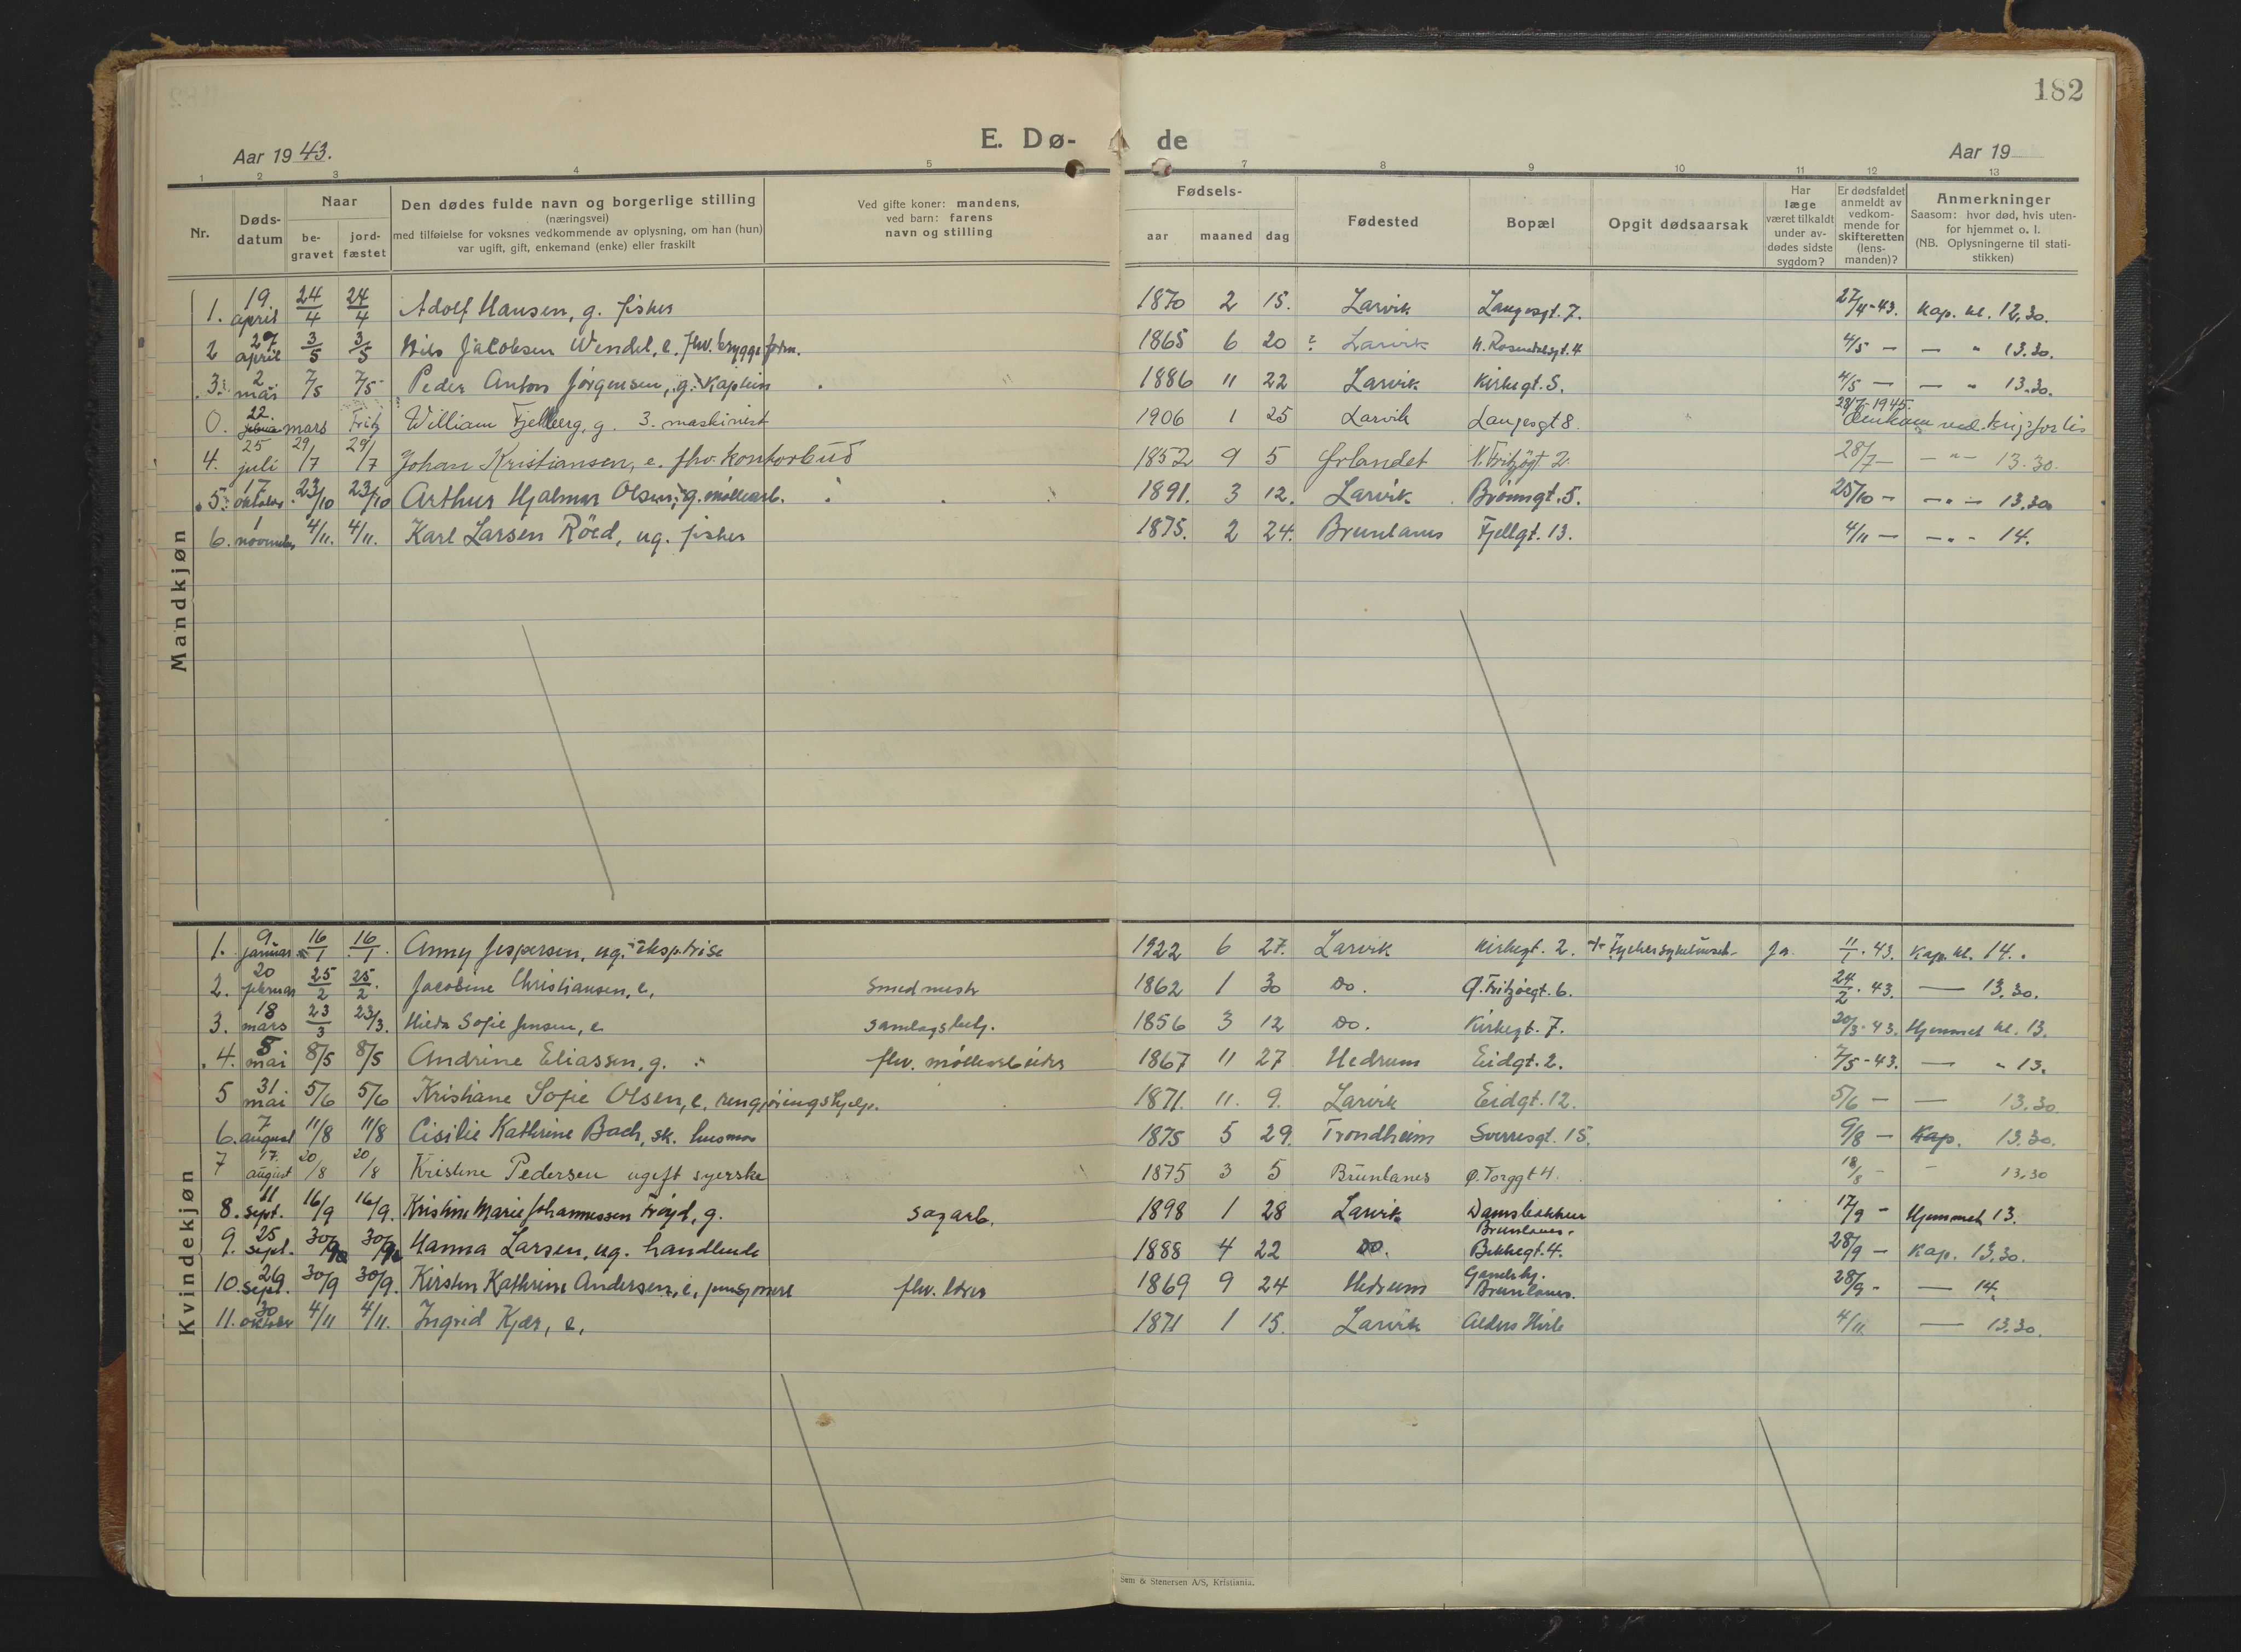 182
Aar 1943.
E. Dø- de
Aar 19
1 2 3 4 5 7 8 9 10 11 12 13
Nr.
Døds-
datum
Naar
be-
gravet
jord-
fæstet
Den dødes fulde navn og borgerlige stilling
(næringsvei)
med tilføielse for voksnes vedkommende av oplysning, om han (hun)
var ugift, gift, enkemand (enke) eller fraskilt
Ved gifte koner: mandens,
ved barn: farens
navn og stilling
Fødsels-
aar maaned dag
Fødested
Bopæl
Opgit dødsaarsak
Har
læge
været tilkaldt
under av-
dødes sidste
sygdom?
Er dødsfaldet
anmeldt av
vedkom-
mende for
skifteretten
(lens-
manden)?
Anmerkninger
Saasom: hvor død, hvis uten-
for hjemmet o. l.
(NB. Oplysningerne til stati-
stikken)
Mandkjøn
1. 19. april 24/4 24/4 Adolf Hansen, g. fisker 1870 2 15. Larvik Langesgt. 7. 27/4-43. Kap. kl. 12.30.
2 27. april 3/5 3/5 Nils Jacobsen Wendel, e. fhv. bryggeform. 1865 6 20 ? Larvik N. Rosendalsgt. 4 4/5 — — " 13.30.
3. 2 mai 7/5 7/5 Peder Anton Jørgensen, g. kaptein 1886 11 22 Larvik Kirkegt. 5. 4/5 — — " 13.30.
0. 22. mars Fritz William Fjellberg, g. 3. maskinist 1906 1 25 Larvik Langesgt 8. 28/7-1945. Omkom ved krigsforlis
4. 25 juli 29/7 29/7 Johan Kristiansen, e. fhv. kontorbud 1852 9 5 Ørlandet N. Fritzøgt 2. 28/7 — — " — 13.30.
5. 17 oktober 23/10 23/10 Arthur Hjalmar Olsen, g. møllearb. 1891. 3 12. Larvik Brønngt. 5. 25/10 — — " — 13.30
6. 1 november 4/11. 4/11. Karl Larsen Röed, ug. fisker 1875. 2 24. Brunlanes Fjellgt. 13. 4/11 — — " - 14.
Kvindekjøn
1. 9 januar 16/1 16/1 Anny Jespersen, ug. eksptrise 1922 6 27. Larvik Kirkegt. 2. Ja. 11/1. 43. Kap. kl. 14.
2. 20 februar 25/2 25/2. Jacobine Christiansen, e. smedmestr 1862 1 30 Do. Ø. Fritzøegt. 6. 24/2. 43. — 13.30.
3. 18 mars 23/3 23/3. Hilda Sofie Jensen, e samlagsbetj. 1856 3 12 Do. Kirkegt. 7. 20/3-43. Hjemmet kl. 13.
4. 5 mai 8/5 8/5 Andrine Eliassen, g. fhv. møllearbeider 1867 11 27 Hedrum Eidgt. 2. 7/5-43. — " 13.
5 31. mai 5/6 5/6 Kristiane Sofie Olsen, e. rengjøringshjelp. 1871. 11. 9. Larvik Eidgt. 12. 5/6 — — 13.30.
6. 7 august 11/8 11/8 Cisilie Kathrine Bach, sk. husmor 1875 5 29. Trondheim Sverresgt. 15. 9/8 — Kap. 13.30.
7 17. august 20/8 20/8 Kristine Pedersen ugift syerske 1875 3 5 Brunlanes Ø. Torggt 4. 18/8 - - 13.30
8. 11 sept. 16/9 16/9. Kristine Marie Johannessen Frøyd, g. sagarb. 1898 1 28 Larvik Damsbakken Brunlanes. 17/9 - Hjemmet 13.
9. 25 sept. 30/9 30/9 Hanna Larsen, ug. handlende 1888 4 22 Do. Bekkegt. 4. 28/9 — Kap. 13.30.
10. 26 sept. 30/9 30/9. Kirsten Kathrine Andersen, e. fhv. 1869 9 24 Hedrum Gamlehj. Brunlanes. 28/9 - — 14.
11. 30 oktober 4/11 4/11. Ingrid Kjær, e. 1871 1 15. Larvik Alders Hvile 4/11 — 13.30.
Sem & Stenersen A/S, Kristiania.